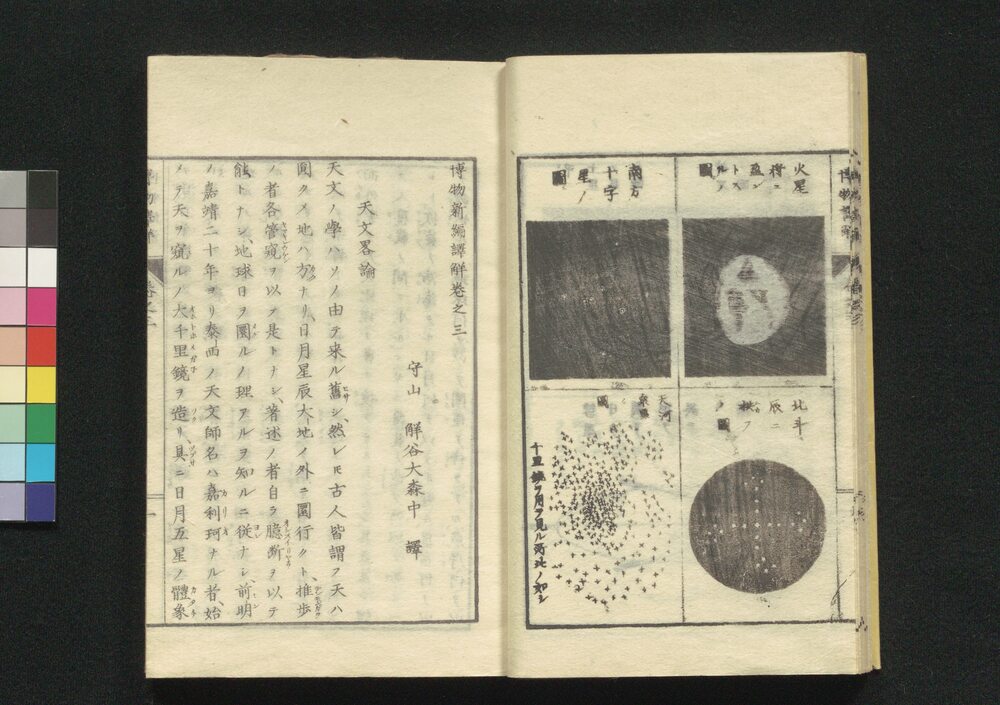 火星
將ニ
盈ン
トス
ルノ
圖
南方
十字
星ノ
圖
北斗
辰ニ
拱フ
ノ圖
天河
衆星
ノ
圖
千里鏡ヲ用テ見ル所此ノ如シ
博物新編譯解卷之三
守山 觧谷大森中 譯
天文畧論
天文ノ學ハソノ由ヲ来ル舊シ、然レ𪜈古人皆謂フ天ハ
圓クメ地ハ方ナリ、日月星辰大地ノ外ニ圜行クト、推歩
ノ者各管窺ヲ以テ是トナシ、著述ノ者自ラ臆斷ヲ以テ
能トナシ、地球日ヲ圜ルノ理アルヲ知ルニ從ナシ、前明
ノ嘉靖二十年ヨリ泰西ノ天文師名ハ嘉利珂ナル者、始
メテ天ヲ窺ルノ大千里鏡ヲ造リ、具ニ日月五星ノ體象